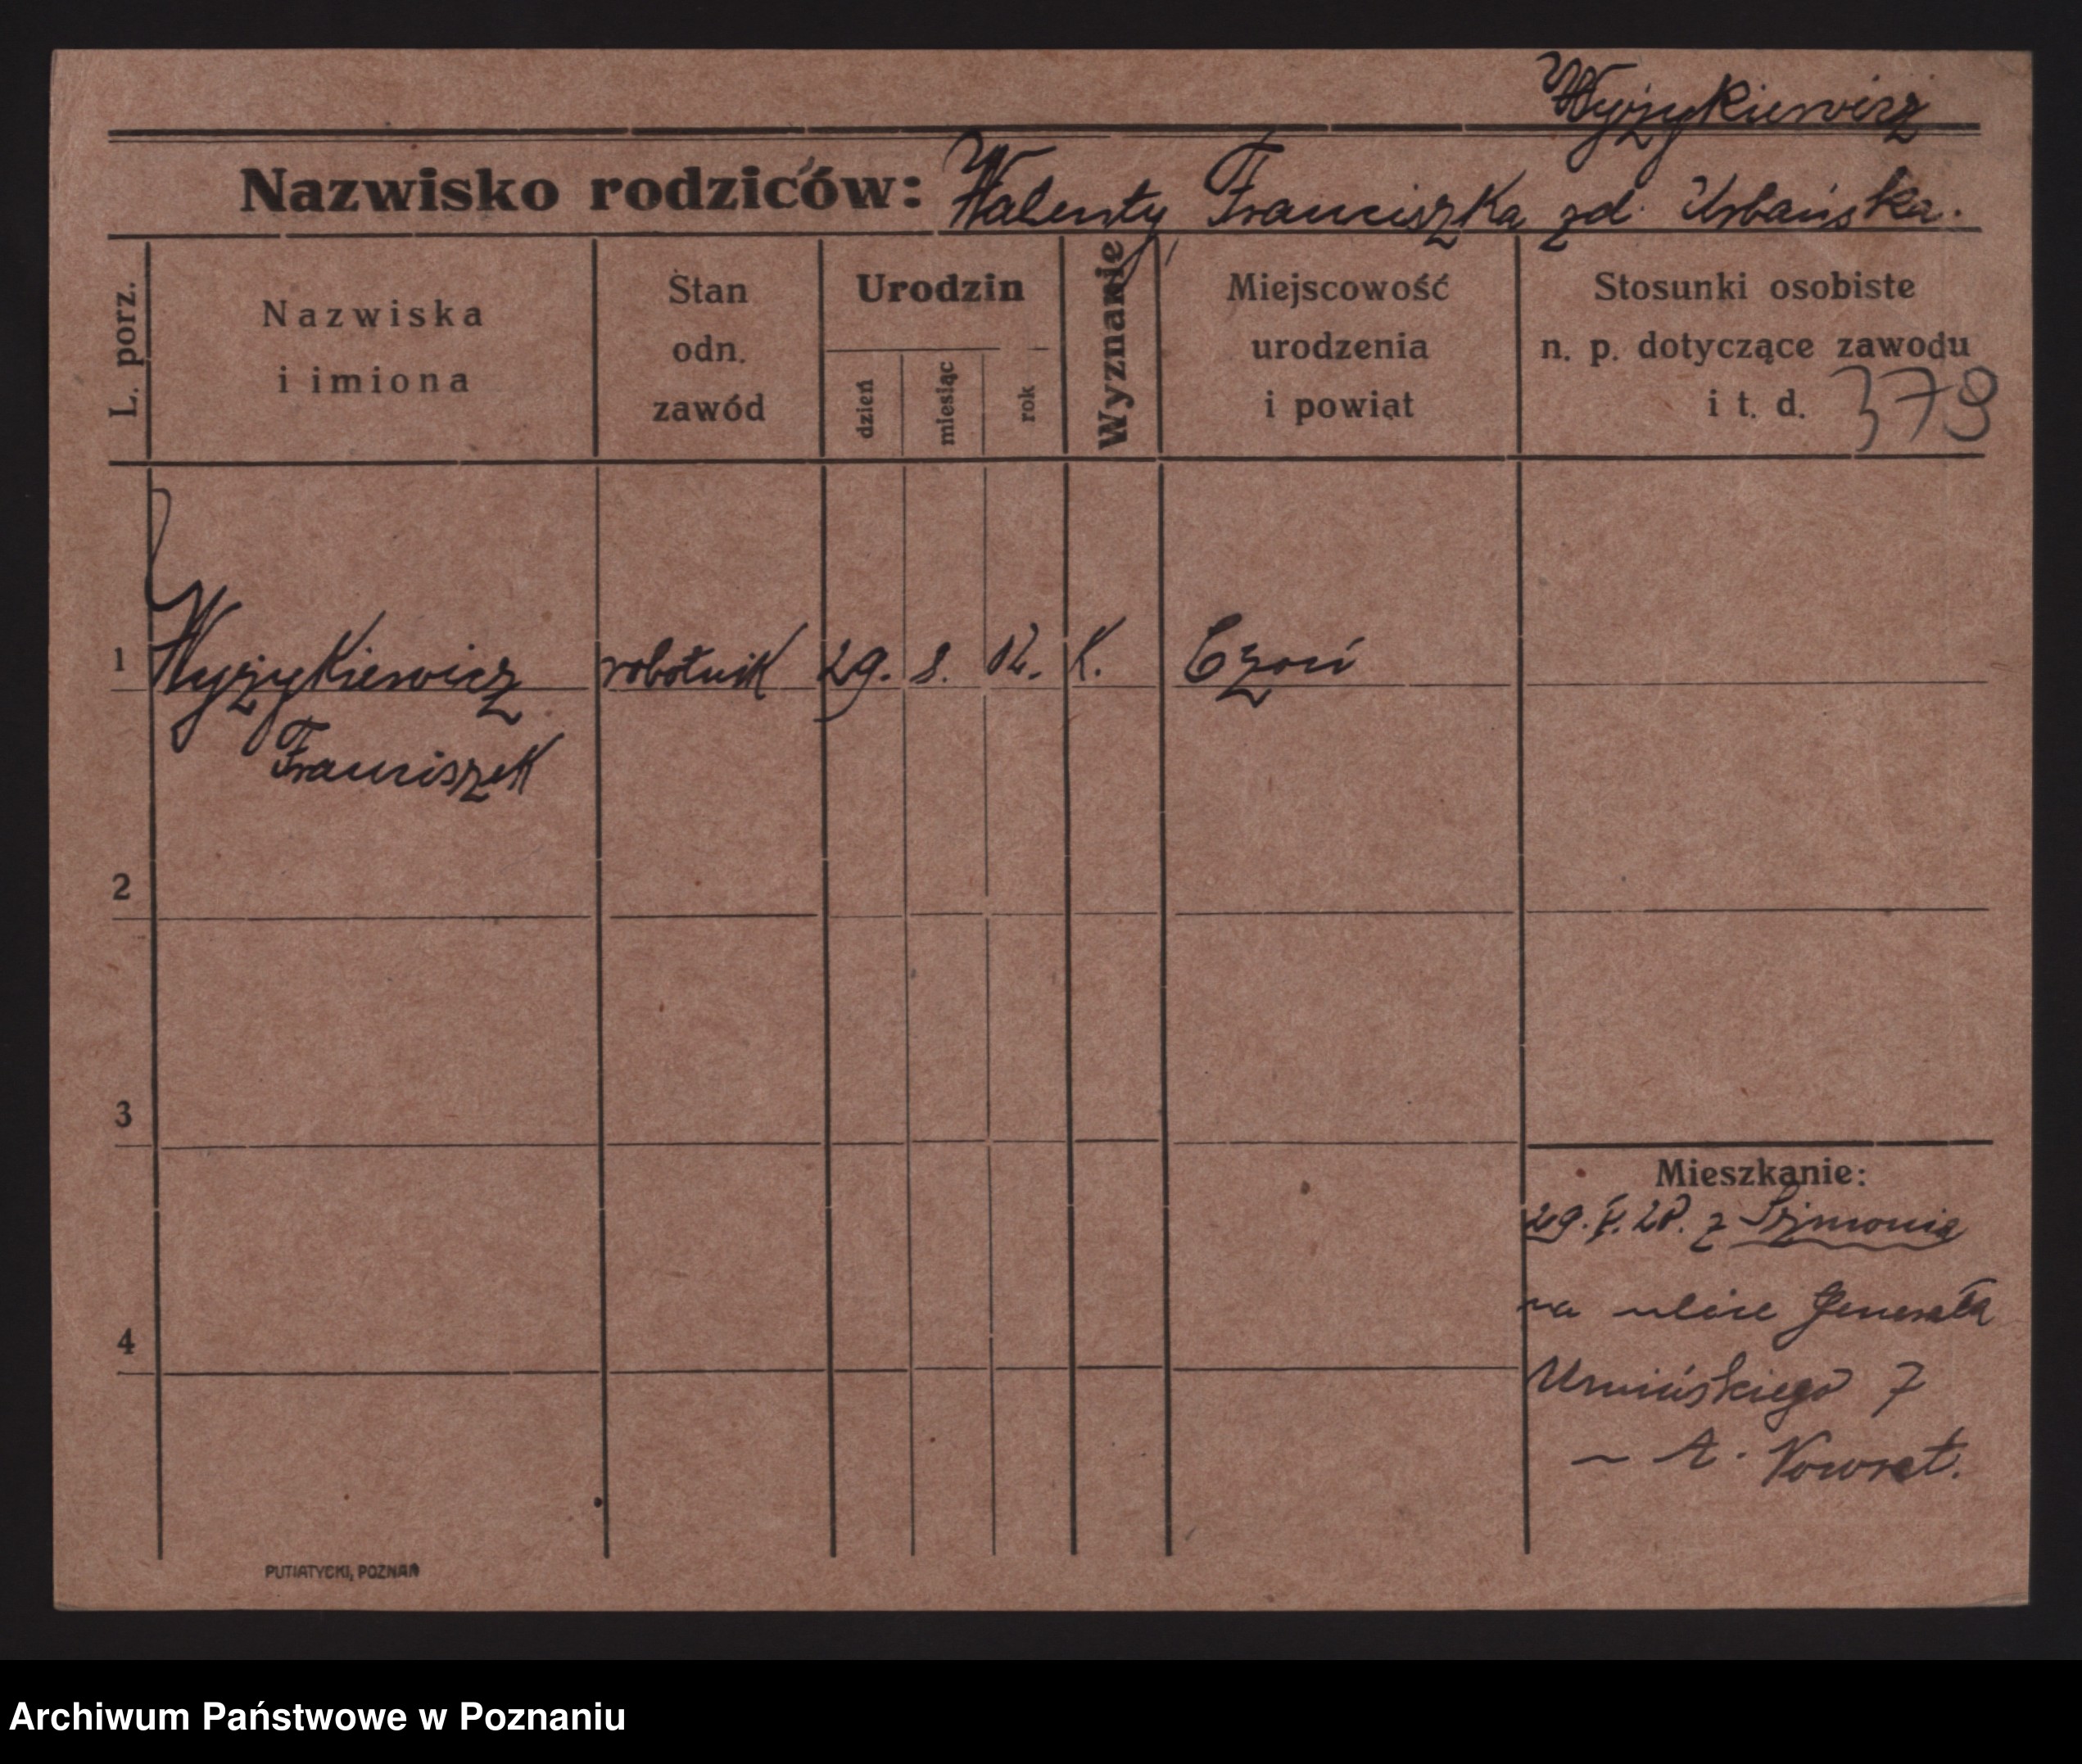 Wyżykiewicz
Nazwisko rodziców: Walenty, Franciszka zd. Urbańska.
L. porz.
Nazwiska
i imiona
Stan
odn.
zawód
Urodzin
dzień
miesiąc
rok
Wyznanie
Miejscowość
urodzenia
i powiat
Stosunki osobiste
n. p. dotyczące zawodu
i t. d. 379
1 Wyżykiewicz robotnik 29. 8. 12. K.
Franciszek
2
3
4
Mieszkanie:
29. z
na ulice Generała
Umińskiego 7
A.
PUTIATYCKI, POZNAŃ
Archiwum Państwowe w Poznaniu